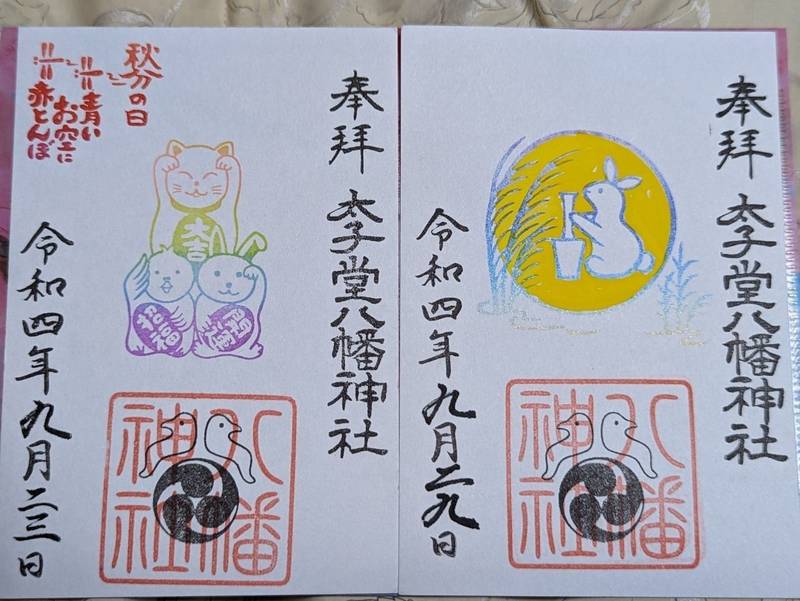 奉拝 太子堂八幡神社
秋分の日
青い
お空に
赤とんぼ
大吉
開運
招福
八幡
神社
令和四年九月二三日
奉拝 太子堂八幡神社
八幡
神社
令和四年九月二九日